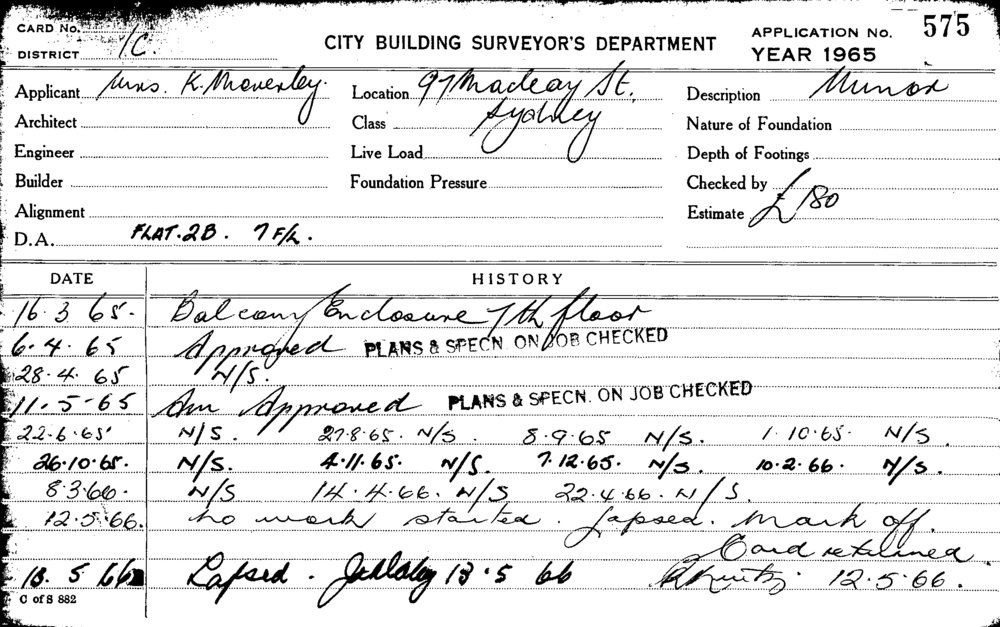 CARD No.
DISTRICT 1C.
CITY BUILDING SURVEYOR'S DEPARTMENT
APPLICATION No. 575
YEAR 1965
Applicant Mrs. K. Moverley.
Location 97 Macleay St.,
Sydney
Description Minor
Architect
Class
Nature of Foundation
Engineer
Live Load
Depth of Footings
Builder
Foundation Pressure
Checked by
Alignment
Estimate £180
D.A. FLAT. 2B. 7 F/L.
DATE HISTORY
16.3.65. Balcony Enclosure 7th floor
6.4.65 Approved PLANS & SPECN. ON JOB CHECKED
28.4.65 N/S.
11.5.65 Am Approved PLANS & SPECN. ON JOB CHECKED
22.6.65 N/S. 27.8.65. N/S. 8.9.65 N/S. 1.10.65. N/S.
26.10.65. N/S. 4.11.65. N/S. 7.12.65. N/S. 10.2.66. N/S.
8.3.66. N/S 14.4.66. N/S 22.4.66. N/S.
12.5.66. No work started. Lapsed. Mark off.
Card retained
12.5.66.
13.5.66 Lapsed. 13.5.66
C of S 882